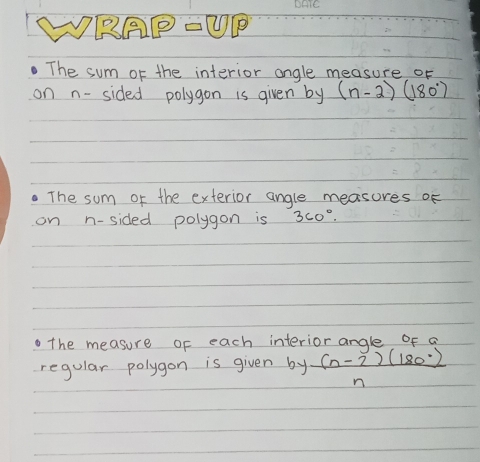 DATE
WRAP-UP
• The sum of the interior angle measure of
on n-sided polygon is given by (n-2)(180°)
• The sum of the exterior angle measures of
an n-sided polygon is 360°.
• the measure of each interior angle of a
regular polygon is given by (n-2)(180°)
n